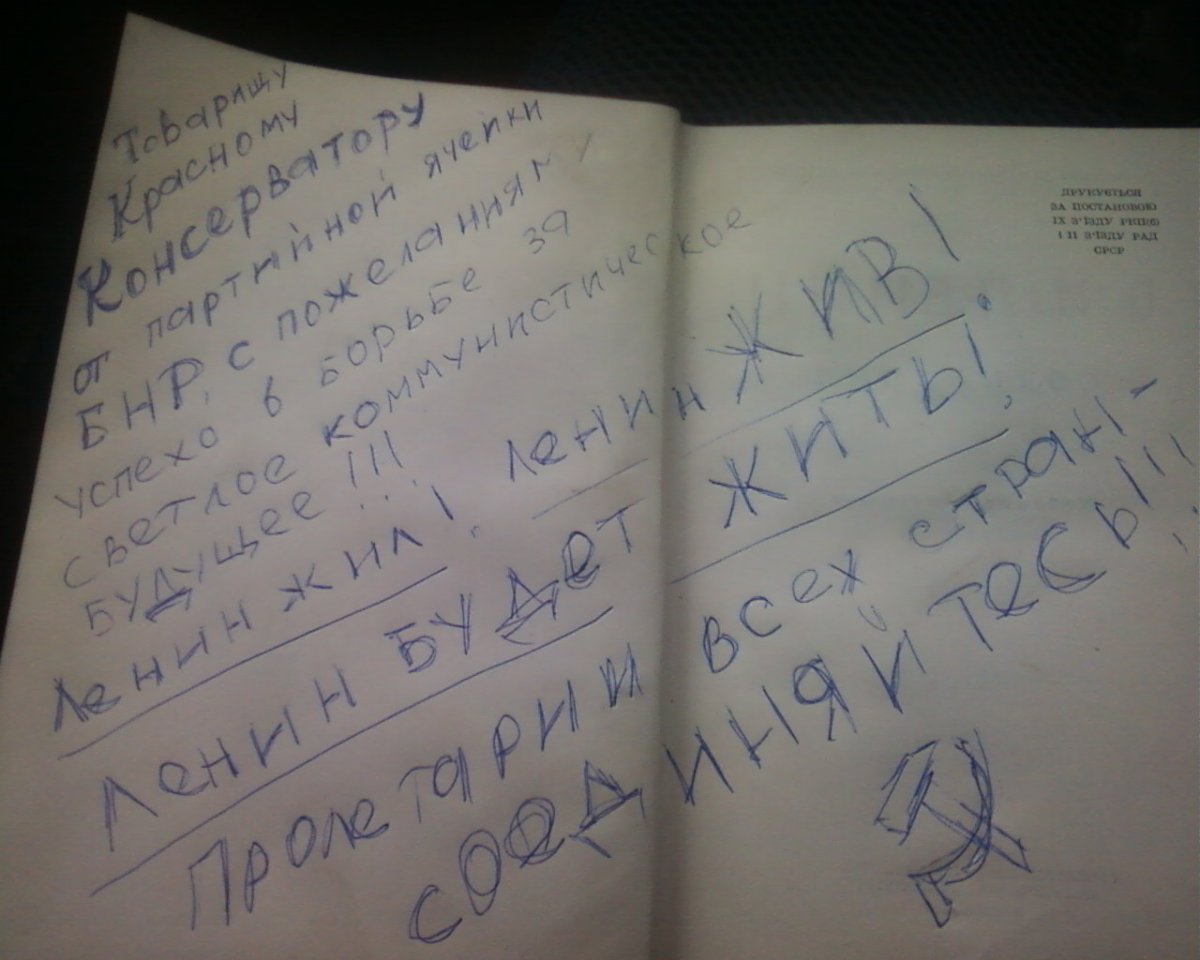 Товарищу
Красному
Консерватору
от партийной ячейки
БНР, с пожеланиям у
успехо в борьбе за
светлое коммунистическое
будущее!!!
Ленин жил! Ленин ЖИВ!
Ленин будет жить!
Пролетарии всех стран-
соединяйтесь!!!
ДРУКУЄТЬСЯ
ЗА ПОСТАНОВОЮ
IX З'ЇЗДУ РКП(б)
І II З'ЇЗДУ РАД
СРСР